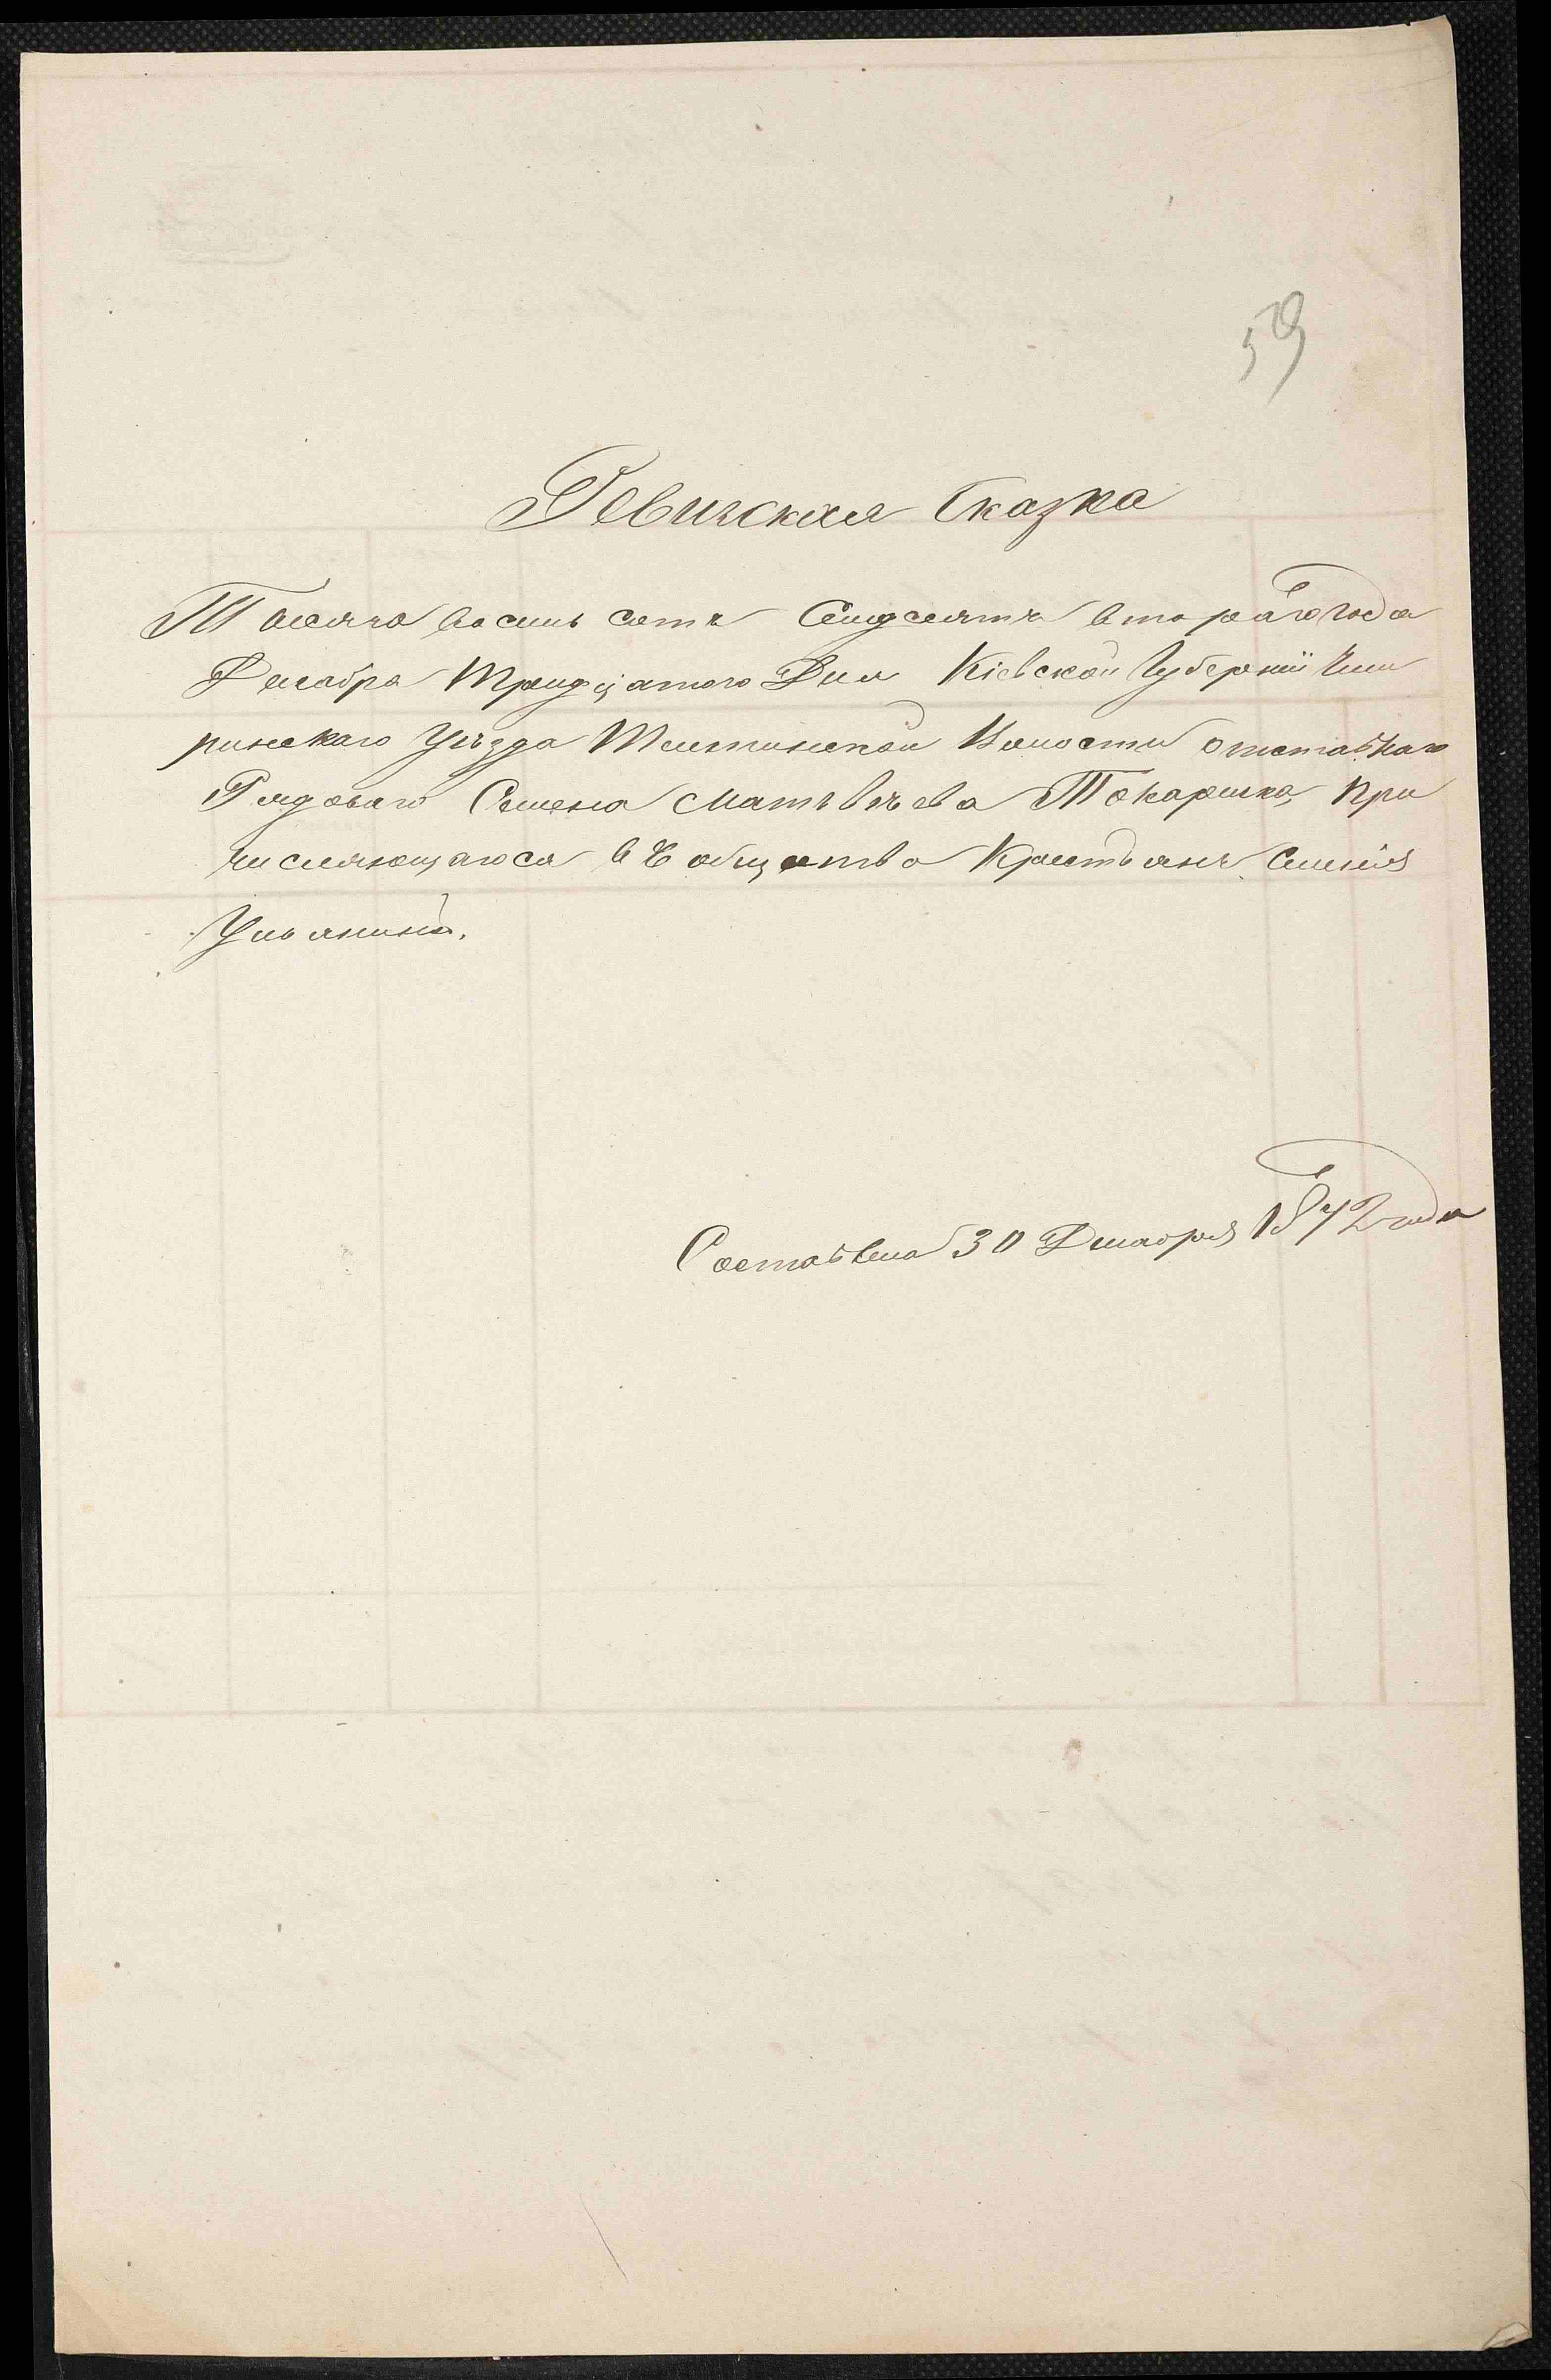 59
Ревизская Сказка
Тысяча восемь сотъ Семдсятъ втораго года
Декабря Тридцатого Дня Кіевской Губерніи Чиги
ринскаго Уѣзда Телепинской Волости отставнаго
Рядоваго Семена Матвѣева Токаренка, при
числяющагося въ общество Крестьянъ Селенія
Ульяники.
Составлена 30 Декабря 1872 года